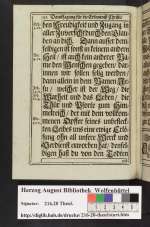 Danksagung für die Erkäntnis Christi
den Freudigkeit und Zugang in
aller Zuversicht durch den Glau-
ben an dich. Dann ausser dem-
selbigen ist sonst in keinem andern
Heil / ist auch kein anderer Na-
me den Menschen gegeben, dar-
innen wir sollen selig werden /
dann allein in dein Namen Je-
su / welcher ist der Weg / die
Warheit und das Leben / die
Thür und Pforte zum Himmelreich
der mit dem vollkom-
menen Opffer seines unbefleck-
ten Leibes uns eine ewige Erlö-
sung ohn all unsere Werck und
Verdienst erworben hat / densel-
bigen hast du von den Todten
Herzog August Bibliothek Wolfenbüttel
Signatur: 216.20 Theol.
http://diglib.hab.de/drucke/216-20-theol/start.htm